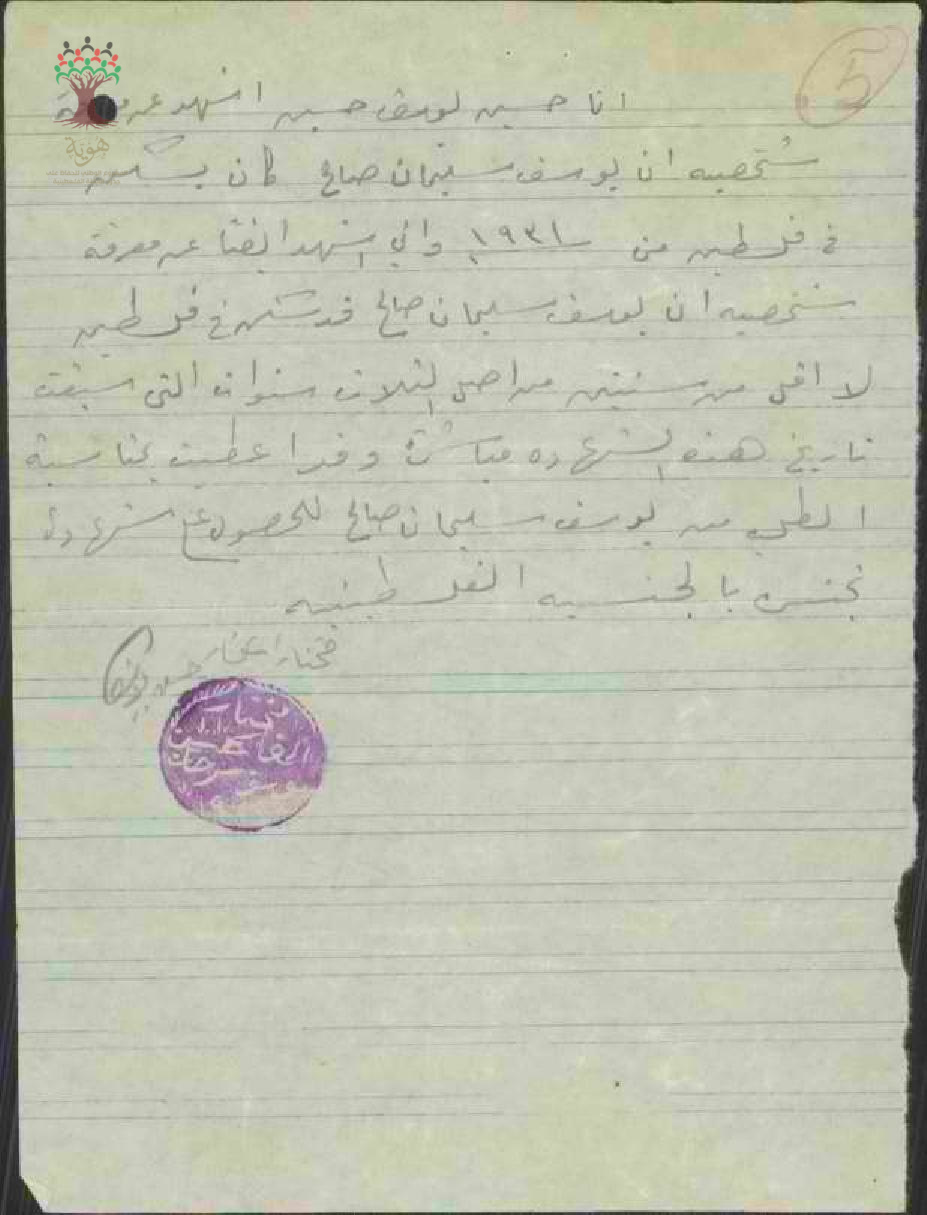 5
هوية
انا حسين يوسف حسين اشهد عن معرفة
شخصيه ان يوسف سليمان صالح كان يسكن
في فلسطين من ١٩٣١ واني اشهد ايضا عن معرفة
شخصيه ان يوسف سليمان صالح قد سكن في فلسطين
لا اقل من سنتين من اصل الثلاث سنوات التي سبقت
تاريخ هذه الشهاده مباشرة وقد اعطيت بمناسبة
الطلب من يوسف سليمان صالح للحصول على شهادة
تجنس بالجنسيه الفلسطينيه
مختار
حسين يوسف